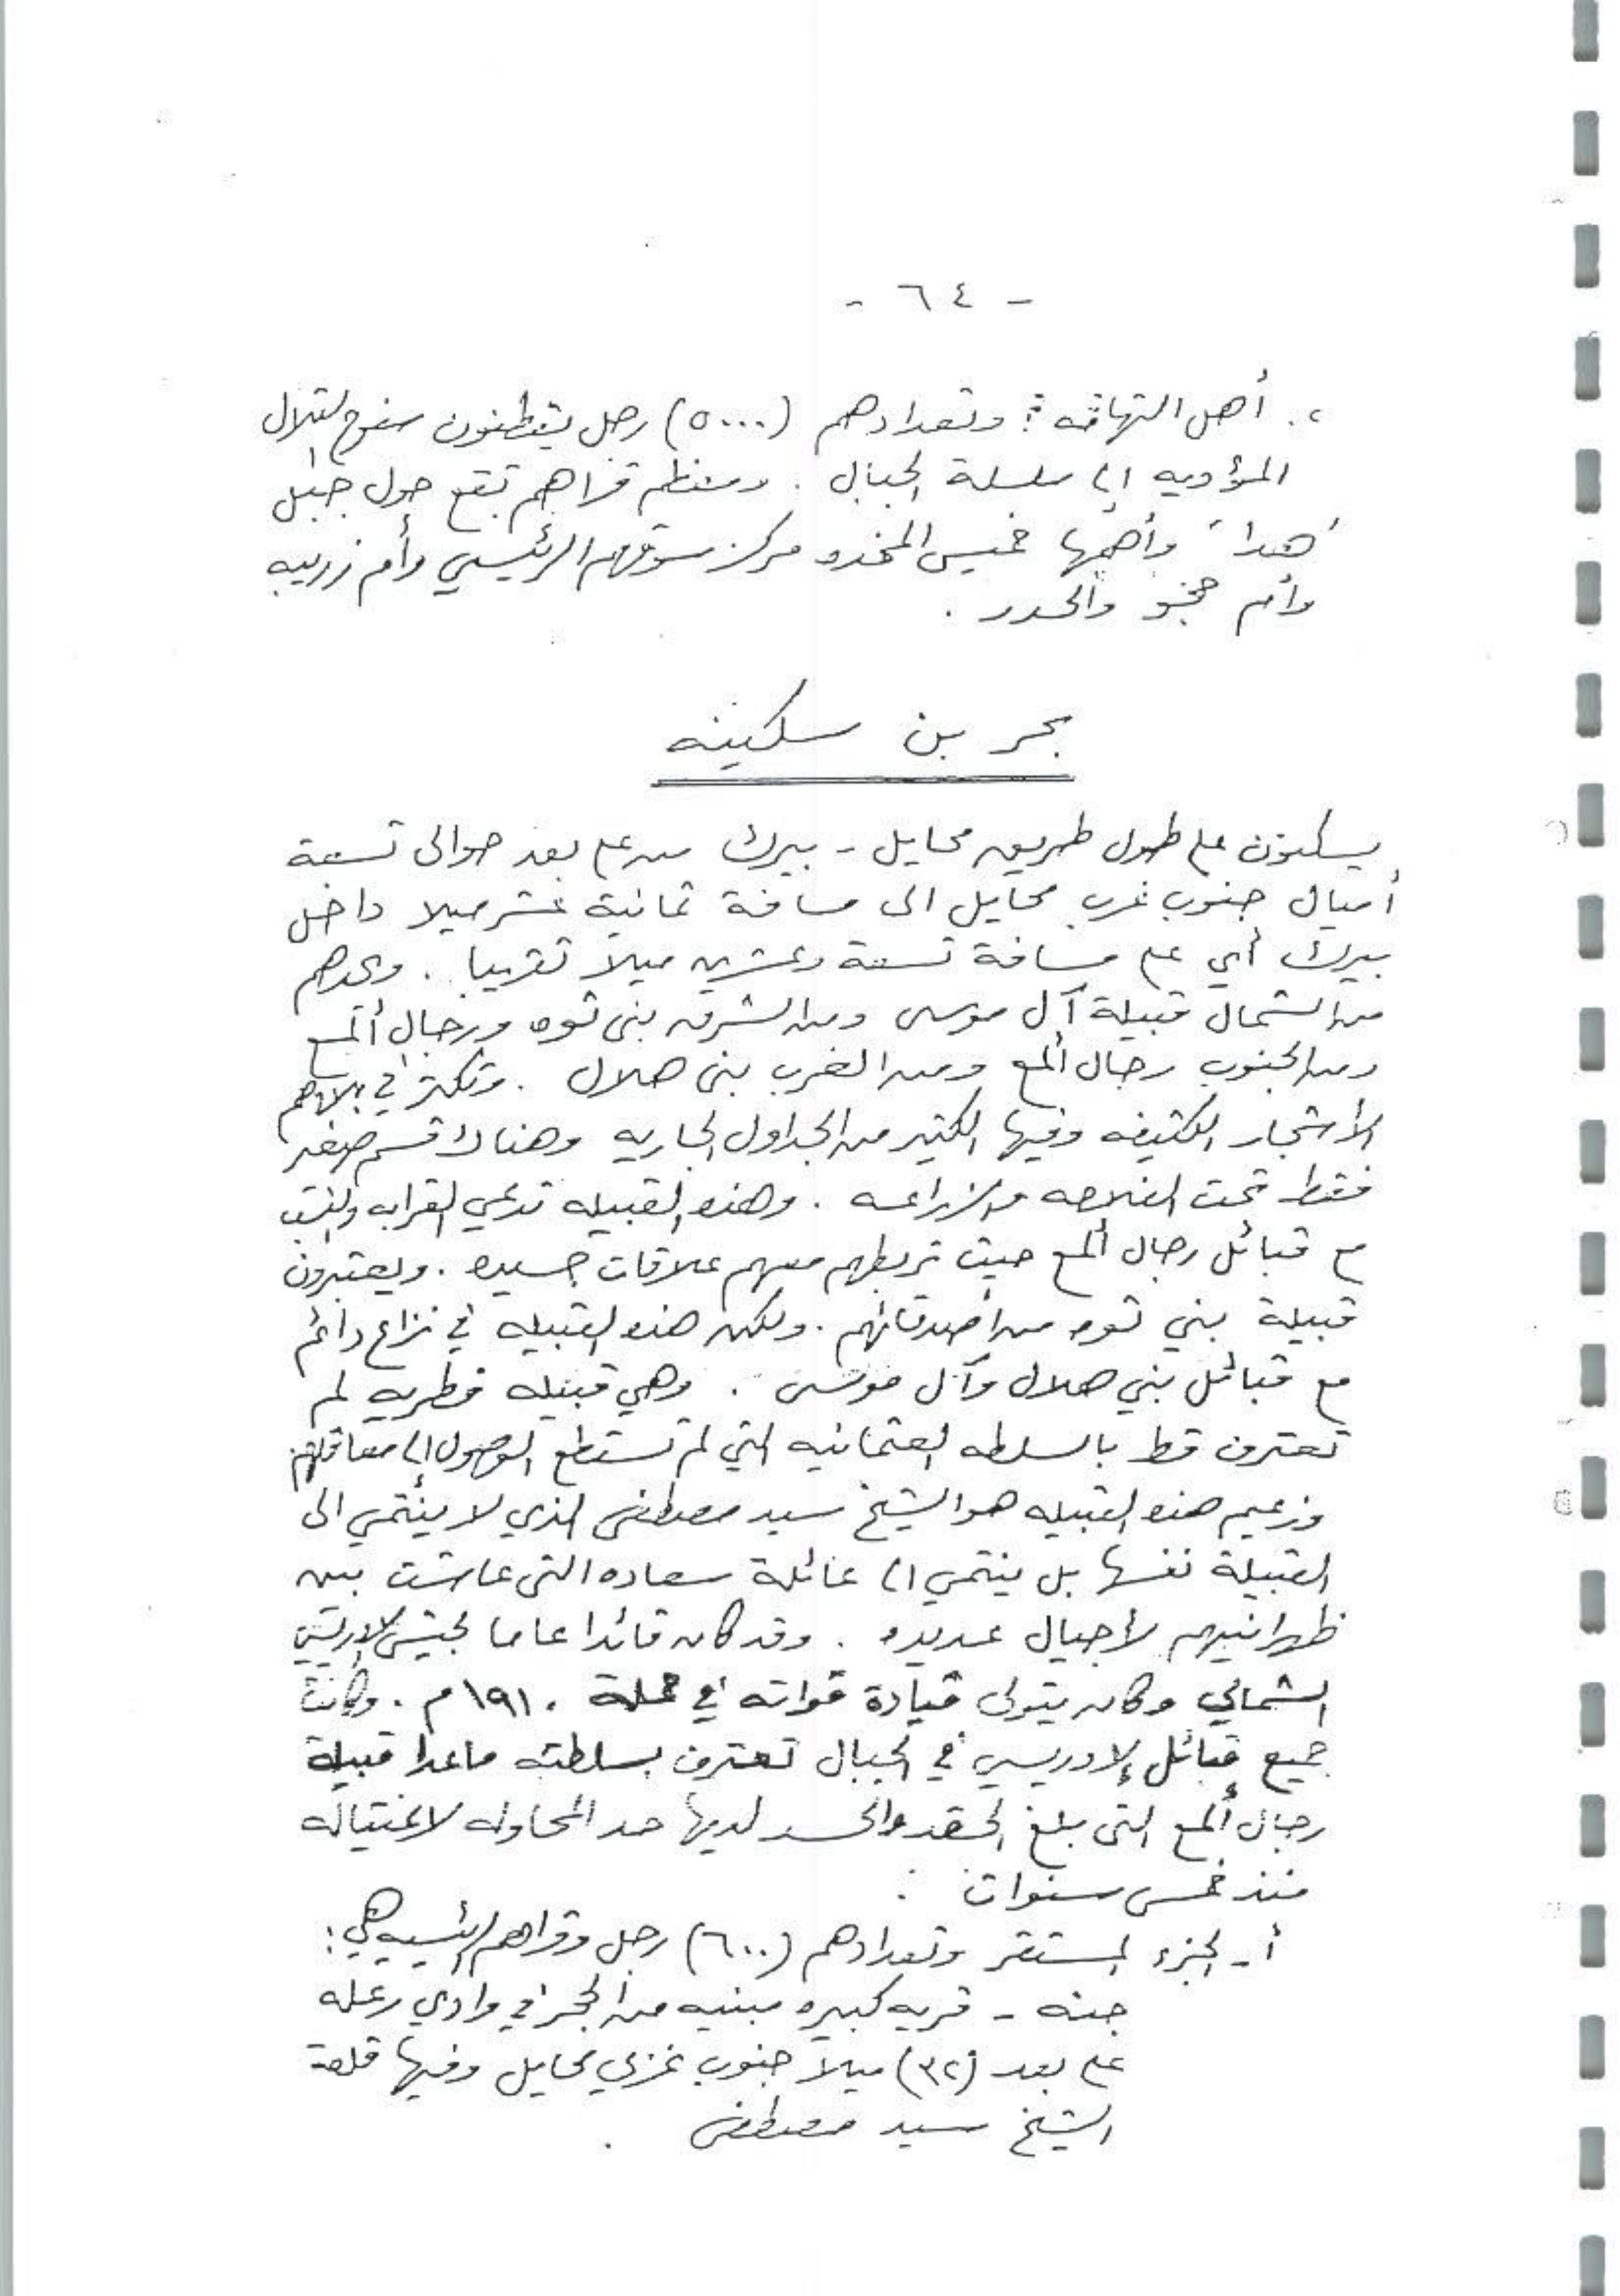 - ٦٤ -
٢. أهل التهامه : وتعدادهم (٥٠٠٠) رجل يقطنون سفوح التلال
المؤديه الى سلسلة الجبال . ومعظم قراهم تقع حول جبل
"هدا" وأهمها خميس المخدره مركز سوقهم الرئيسي وأم زريبه
وأم والحدر .
بحر بن سكينه
يسكنون على طول طريق محايل - بيرك من على بعد حوالى تسعة
أميال جنوب غرب محايل الى مسافة ثمانية عشر ميلا داخل
بيرك أي على مسافة تسعة وعشرين ميلاً تقريبا . ويحدهم
من الشمال قبيلة آل موسى ومن الشرق بنى ثوه ورجال ألمع
ومن الجنوب رجال ألمع ومن الغرب بنى هلال . وتكثر في بلادهم
الأشجار الكثيفه وفيها الكثير من الجداول الجاريه وهناك قسم صغير
فقط تحت الفلاحه والزراعه . وهذه القبيله تدعي القرابه والنسب
مع قبائل رجال ألمع حيث تربطهم معهم علاقات جيده . ويعتبرون
قبيلة بني ثوه من أصدقائهم . ولكن هذه القبيله في نزاع دائم
مع قبائل بني هلال وآل موسى . وهي قبيله فطريه لم
تعترف قط بالسلطه العثمانيه التي لم تستطع الوصول إلى معاقلهم
وزعيم هذه القبيله هو الشيخ سيد مصطفى الذي لا ينتمي الى
القبيلة نفسها بل ينتمي الى عائلة سعاده التى عاشت بين
ظهرانيهم لأجيال عديده . وقد كان قائدا عاما لجيش الإدريسي
الشمالي وكان يتولى قيادة قواته في حملة ١٩١٠م . وكانت
جميع قبائل الإدريسي في الجبال تعترف بسلطته ماعدا قبيلة
رجال ألمع التى بلغ الحقد والحسد لديها حد المحاوله لاغتياله
منذ خمس سنوات .
أ - الجزء المستقر وتعدادهم (٦٠٠) رجل وقراهم الرئيسيه هي :
جنه - قريه كبيره مبنيه من الحجر في وادي رعله
على بعد (٣٢) ميلاً جنوب غربي محايل وفيها قلعة
الشيخ سيد مصطفى .